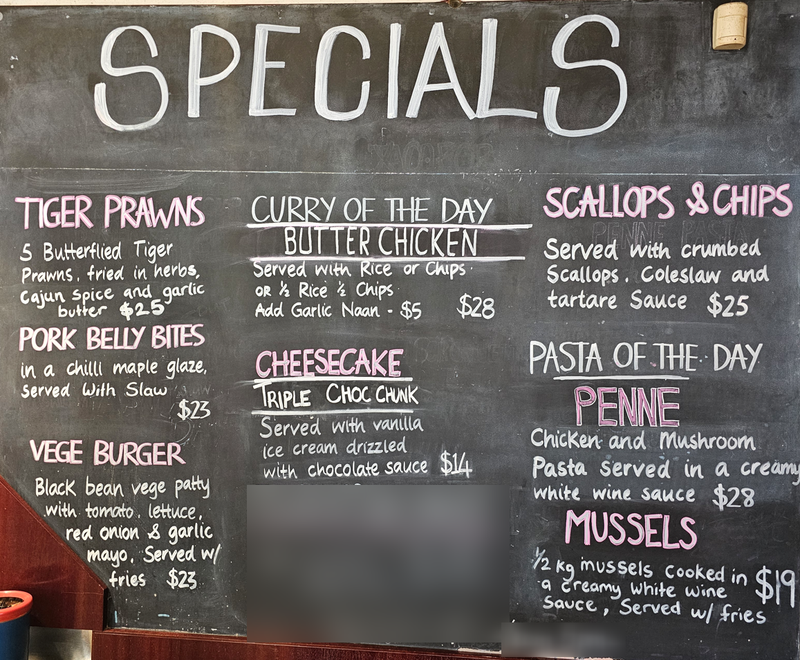 SPECIALS
TIGER PRAWNS
5 Butterflied Tiger
Prawns, fried in herbs,
Cajun spice and garlic
butter $25
PORK BELLY BITES
in a chilli maple glaze,
Served With Slaw
$23
VEGE BURGER
Black bean vege patty
with tomato, lettuce,
red onion & garlic
mayo, Served w/
fries $23
CURRY OF THE DAY
BUTTER CHICKEN
Served with Rice or Chips
OR ½ Rice ½ Chips
Add Garlic Naan - $5 $28
CHEESECAKE
TRIPLE CHOC CHUNK
Served with vanilla
ice cream drizzled
with chocolate sauce $14
SCALLOPS & CHIPS
Served with crumbed
Scallops, Coleslaw and
tartare Sauce $25
PASTA OF THE DAY
PENNE
Chicken and Mushroom
Pasta served in a creamy
white wine sauce $28
MUSSELS
½ kg mussels cooked in
a creamy white wine $19
sauce, Served w/ fries